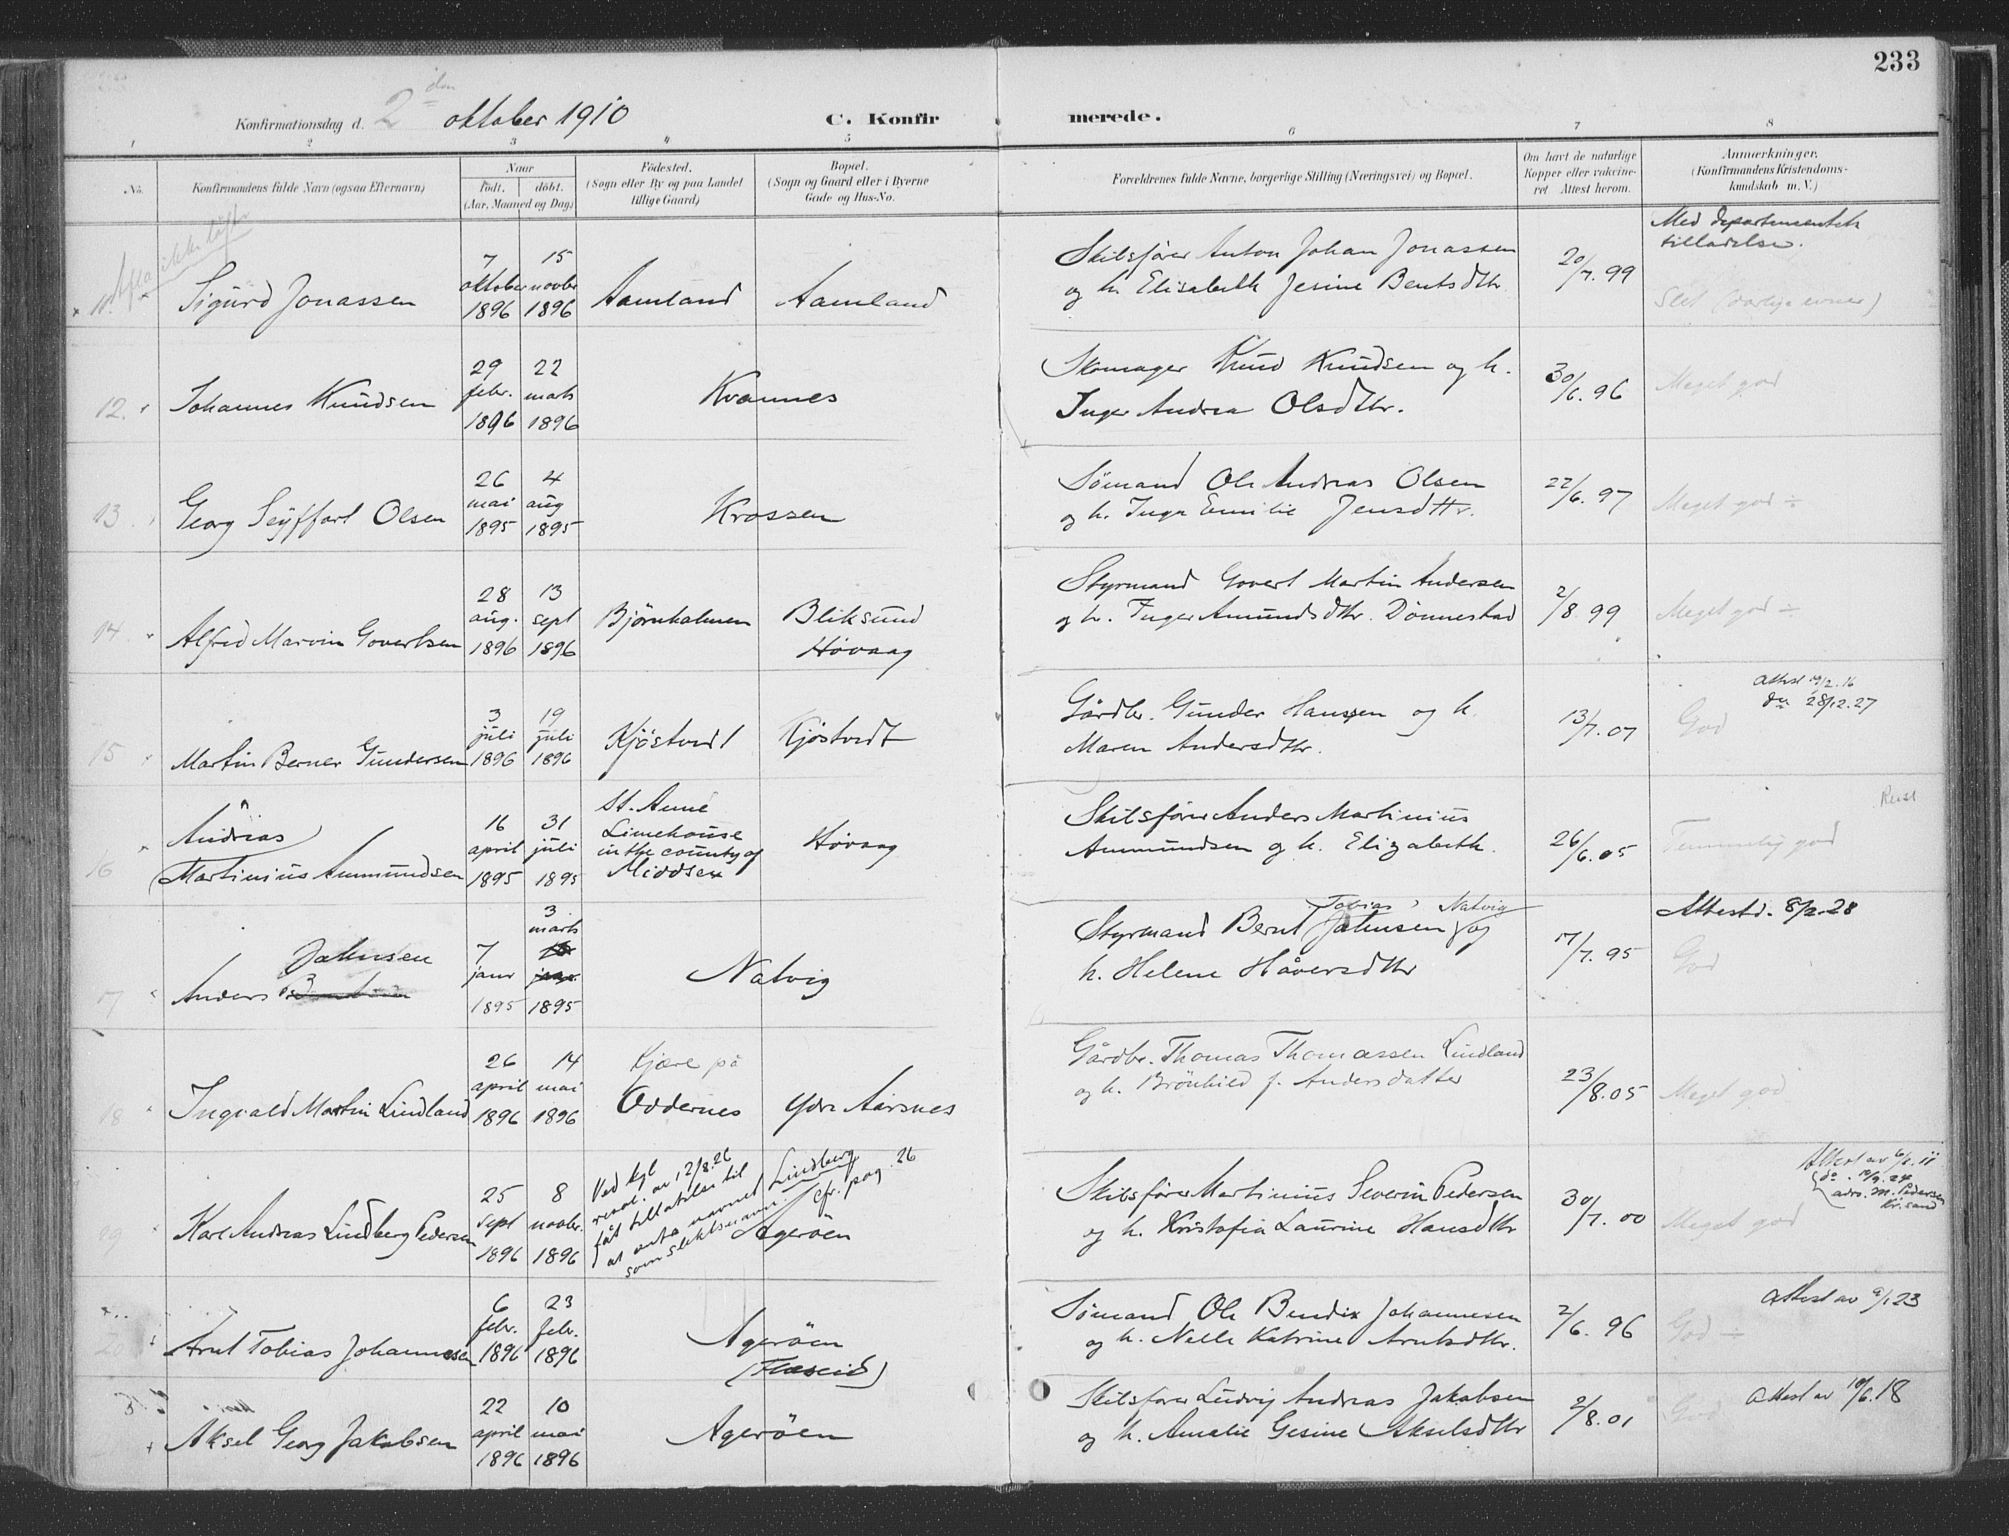 233
Konfirmationsdag d. 2den oktober 1910
C. Konfirmerede.
1 2 3 4 5 6 7 8
No.
Konfirmandens fulde Navn (ogsaa Efternavn)
Naar
födt. döbt.
(Aar, Maaned og Dag)
Födested.
(Sogn eller By og paa Landet
tillige Gaard)
Bopæl.
(Sogn og Gaard eller i Byerne
Gade og Hus-No.
Forældrenes fulde Navne, borgerlige Stilling (Næringsvei) og Bopæl.
Om havt de naturlige
Kopper eller vakcine-
ret Attest herom.
Anmærkninger.
(Konfirmandens Kristendoms-
kundskab m. V.)
11. Sigurd Jonassen
7 oktober 1896
15 novbr 1896
Aamland
Aamland
Skibsfører Anton Johan Jonassen
og h. Elisabeth Jesine Bentsdtr.
20/7. 99
Med departementets
tilladelse.
Slet (daarlige evner)
12. Johannes Knudsen
29 febr. 1896
22 marts 1896
Kvannes
Skomager Knud Knudsen og h.
Inger Andrea Olsdtr.
30/6. 96
Meget god
13. Georg Seyffart Olsen
26 mai 1895
4 aug 1895
Krossen
Sömand Ole Andreas Olsen
og h. Inga Emilie Jensdtr.
22/6. 97
Meget god ÷
14. Alfred Marvin Govertsen
28 aug. 1896
13 sept 1896
Bjørnholmen
Bliksund
Høvaag
Styrmand Govert Martin Andersen
og h. Inger Amundsdtr. Dönnestad
2/8 99
Meget god ÷
15 Martin Berner Gundersen
3 juli 1896
19 juli 1896
Kjöstvedt
Kjöstvedt
Gårdbr. Gunder Hansen og h.
Maren Andersdtr.
13/7. 07
God
Attest 19/2. 16
do 28/12. 27
16 Andreas
Martinius Ammundsen
16 april 1895
31 juli 1895
St. Anne
Limehouse
in the county of
Middsex
Høvaag
Skibsfører Anders Martinius
Ammundsen og h. Elizabeth.
26/6. 05
Temmelig god
17 Anders Jahnsen
7 janr 1895
3 marts 1895
Natvig
Styrmand Bernt Tobias Jahnsen Natvig og
h. Helene Håversdtr
17/7. 95
God
Attestd. 8/2-28
18 Ingvald Martin Lindland
26 april 1896
14 mai 1896
Kjære på
Oddernes
Ydre Aarsnes
Gårdbr. Thomas Thomassen Lindland
og h. Brönhild f. Andersdatter
23/8. 05
Meget god
19 Karl Andreas Lindberg Pedersen
25 sept 1896
8 novbr. 1896
Ved kgl
resol. av 12/8. 26
fåt tillatelse til
at anta navnet Lindberg
som slektsnavn. cfr. pag. 26
Ageröen
Skibsfører Martinius Severin Pedersen
og h. Kristofia Laurine Hansdtr
30/7. 00
Meget god
Attest av 6/2. 11
do. 10/9. 24
adrs. M. Pedersen
Kr.sand
20 Arnt Tobias Johannesen
6 febr. 1896
23 febr. 1896
Ageröen
Sömand Ole Bendix Johannesen
og h. Nelle Katrine Arntsdtr.
2/6. 96
God ÷
Attest av 9/1 23
Aksel Georg Jakobsen
22 april 1896
10 mai 1896
Ageröen
Skibsfører Ludvig Andreas Jakobsen
og h. Amalie Gesine Akselsdtr
2/8. 01
God
Attest av 10/6. 18